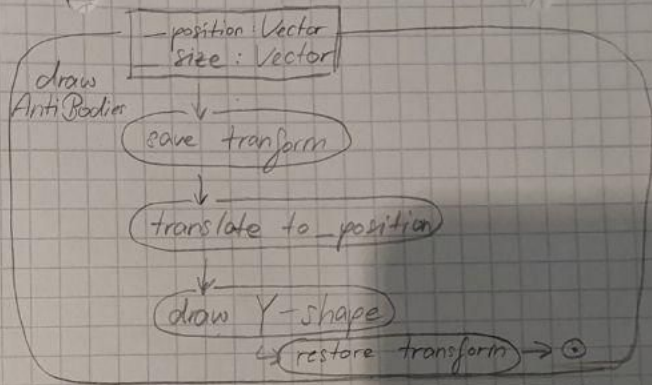 _position: Vector
_size: Vector
draw
AntiBodies
save transform
translate to _position
draw Y-shape
restore transform